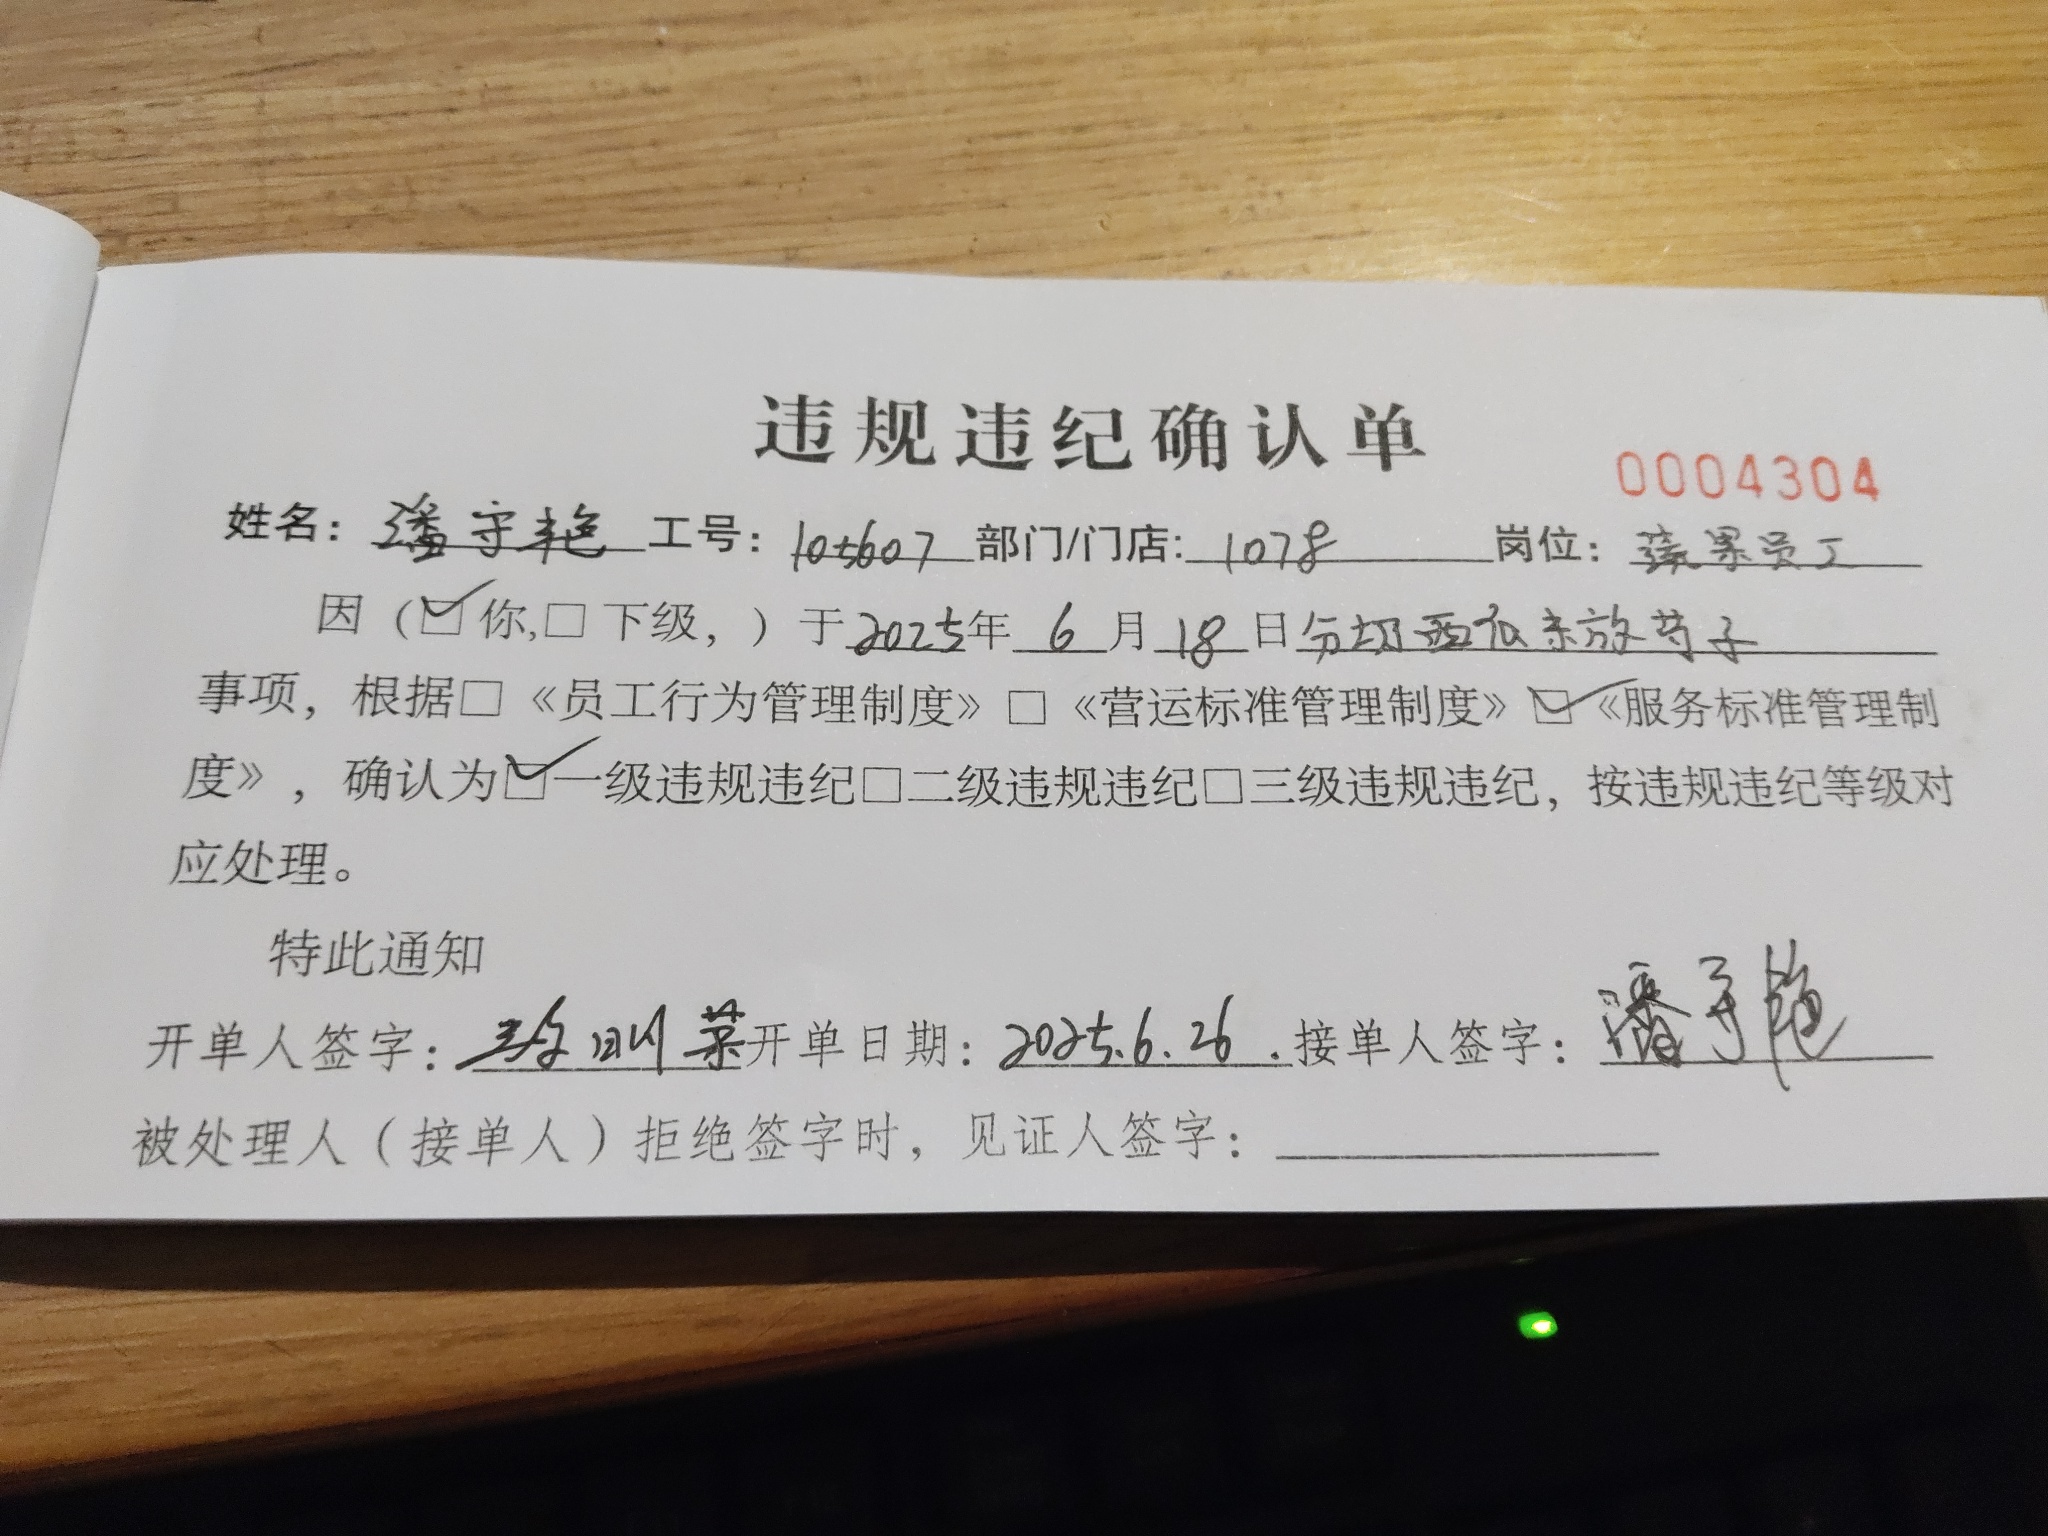 违规违纪确认单
0004304
姓名：潘守艳 工号：105607 部门/门店：1078 岗位：蔬果员工
因（☑你,□下级，）于2025年6月18日分切西瓜未放勺子
事项，根据□《员工行为管理制度》□《营运标准管理制度》☑《服务标准管理制
度》，确认为☑一级违规违纪□二级违规违纪□三级违规违纪，按违规违纪等级对
应处理。
特此通知
开单人签字： 开单日期：2025.6.26. 接单人签字：潘守艳
被处理人（接单人）拒绝签字时，见证人签字：